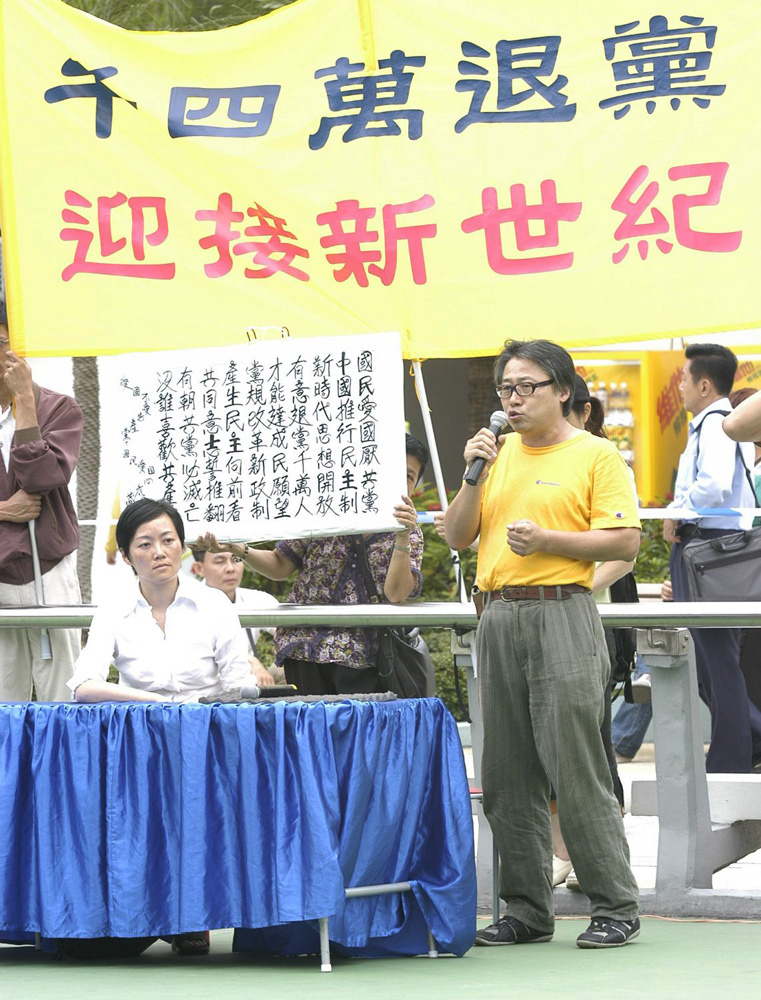 千四萬退黨
迎接新世紀
國民愛國厭共黨
中國推行民主制
新時代思想開放
有意退黨千萬人
才能達成民願望
黨規改革新政制
產生民主向前看
共同意志誓推翻
有朝共黨必滅亡
沒誰喜歡共產